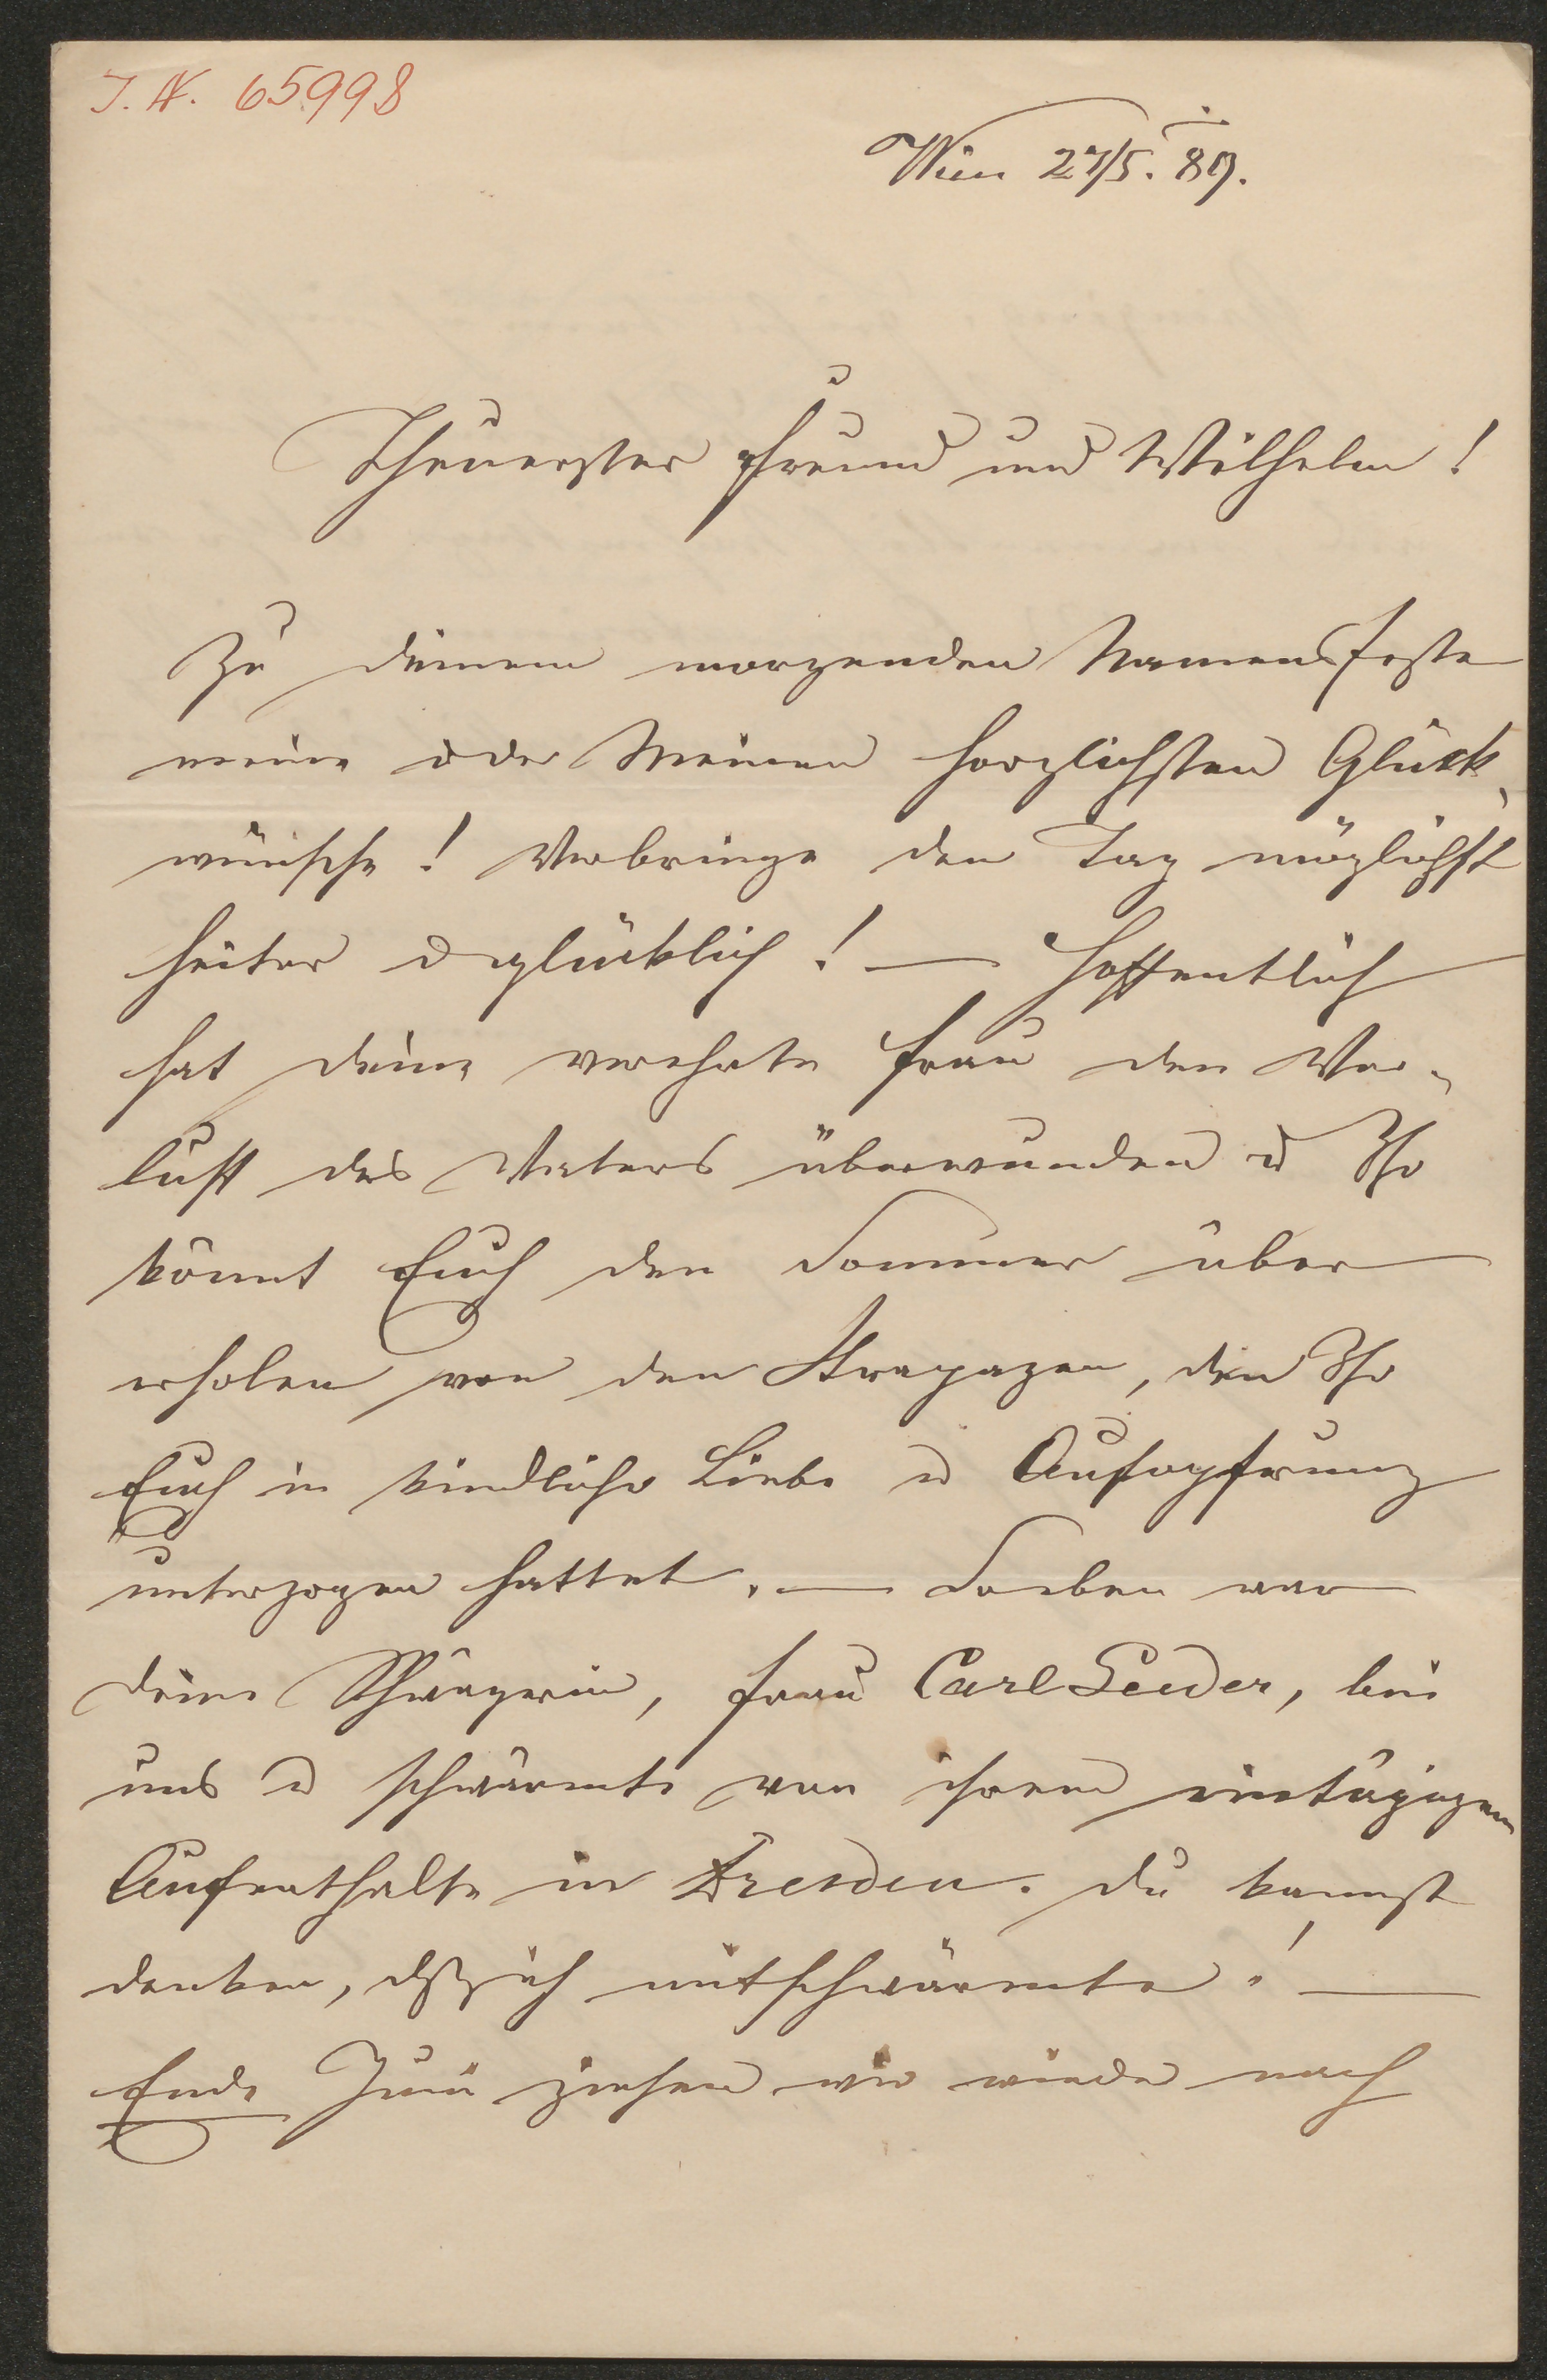 I. N. 65998
Wien 27/5. 89.
Theuerster Freund und Wilhelm!
Zu deinem morgenden Namensfeste
meine oder Meinen herzlichsten Glück-
wünsche! Verbringe den Tag möglichst
heiter u glücklich! — Hoffentlich
hat deine verehrte Frau den Ver-
lust des Vaters überwunden u Ihr
könnt Euch den Sommer über
erholen von den Strapazen, den Ihr
Euch in kindlicher Liebe u Aufopfrung
unterzogen hattet. — Soeben war
deine Schwägerin, Frau Carl Seeder, bei
uns u schwärmte von ihrem eintägigen
Aufenthalte in Dresden. Du kannst
denken, dß ich mitschwärmte! —
Ende Juni ziehen wir wieder nach